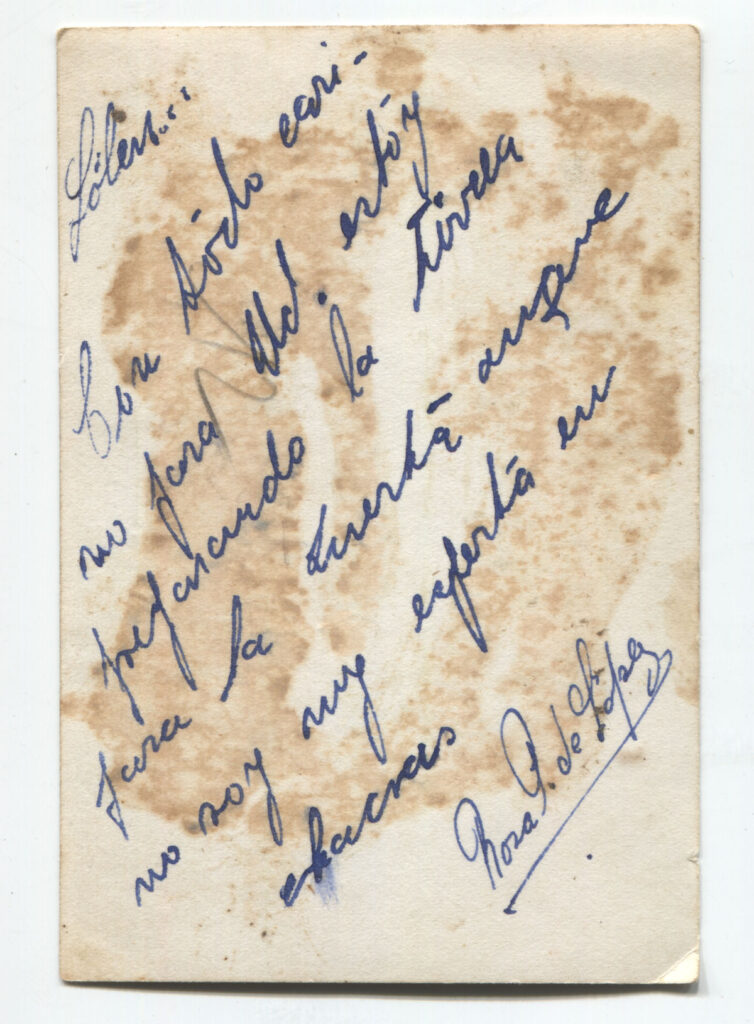 Con tódo cari-
ño para Ud. estóy
preparando la tiérra
para la huertá aunque
no soy muy expertá en
chacras
Rosa P. de López